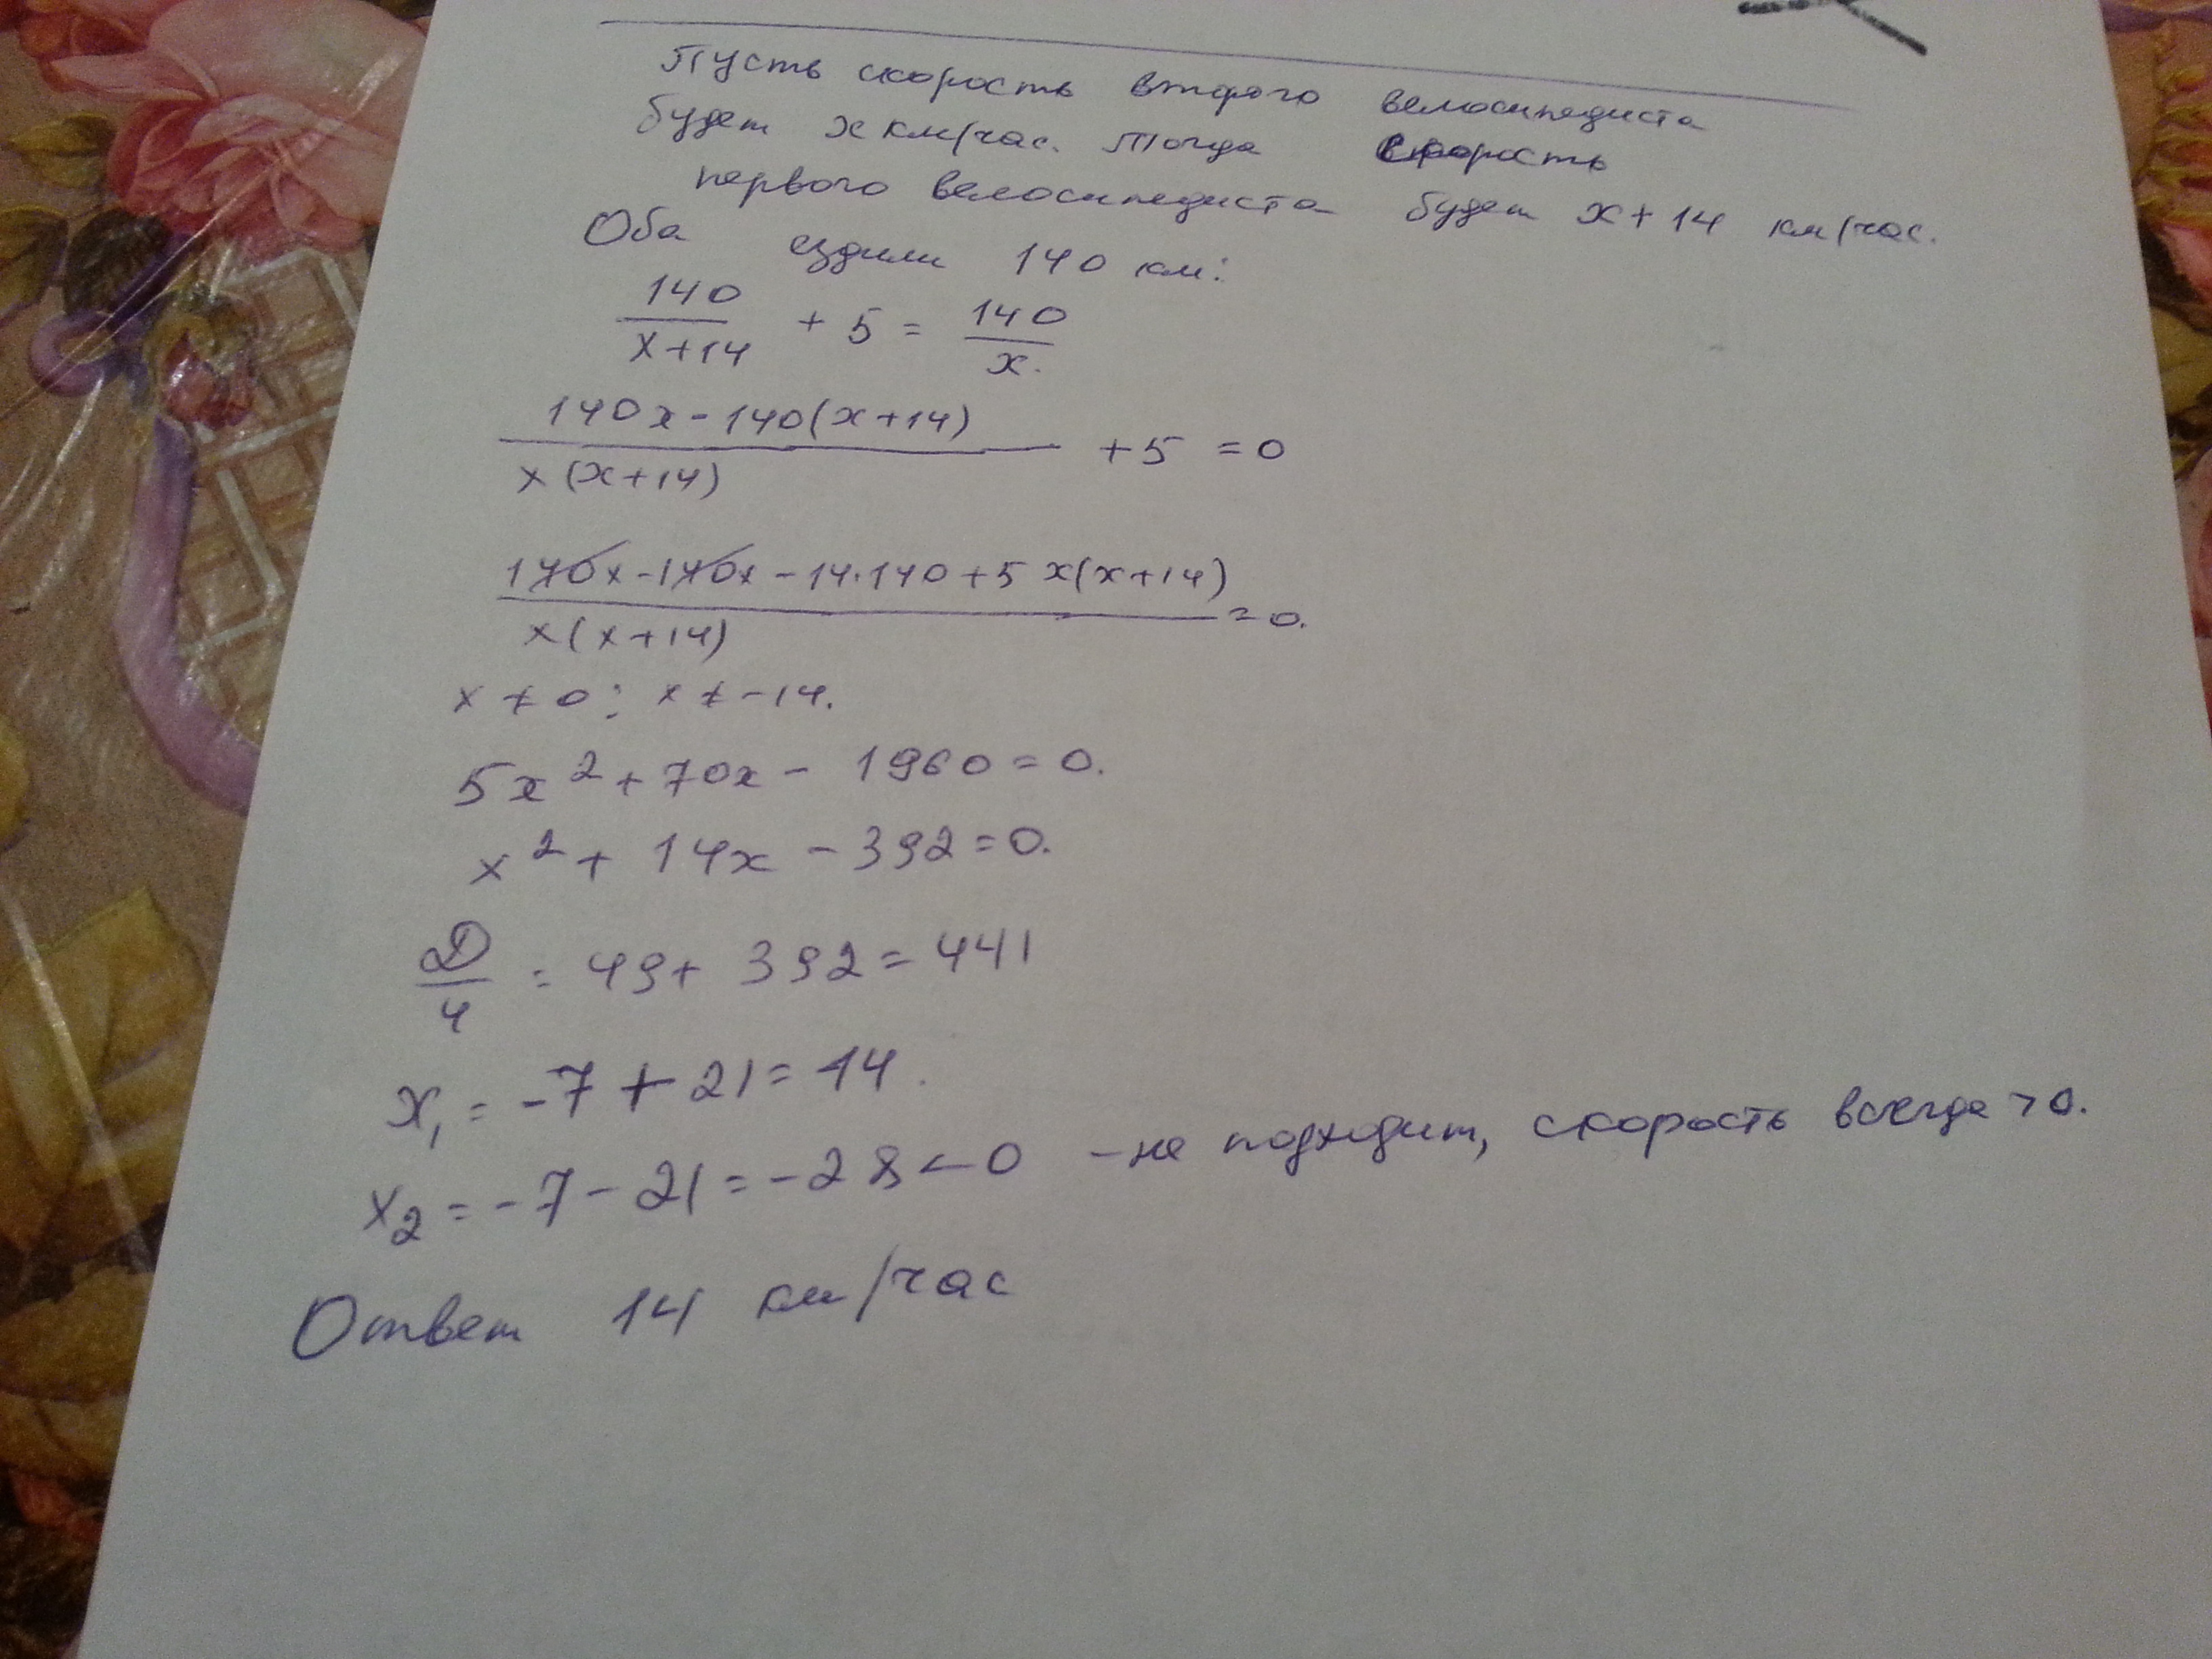 Пусть скорость второго велосипедиста
будет x км/час. Тогда скорость
первого велосипедиста будет x + 14 км/час.
Оба ездили 140 км:
140/(x+14) + 5 = 140/x.
(140x - 140(x+14))/(x(x+14)) + 5 = 0
(140x - 140x - 14·140 + 5x(x+14))/(x(x+14)) = 0.
x ≠ 0; x ≠ -14.
5x² + 70x - 1960 = 0.
x² + 14x - 392 = 0.
D/4 = 49 + 392 = 441
x₁ = -7 + 21 = 14.
x₂ = -7 - 21 = -28 < 0 - не подходит, скорость всегда > 0.
Ответ 14 км/час